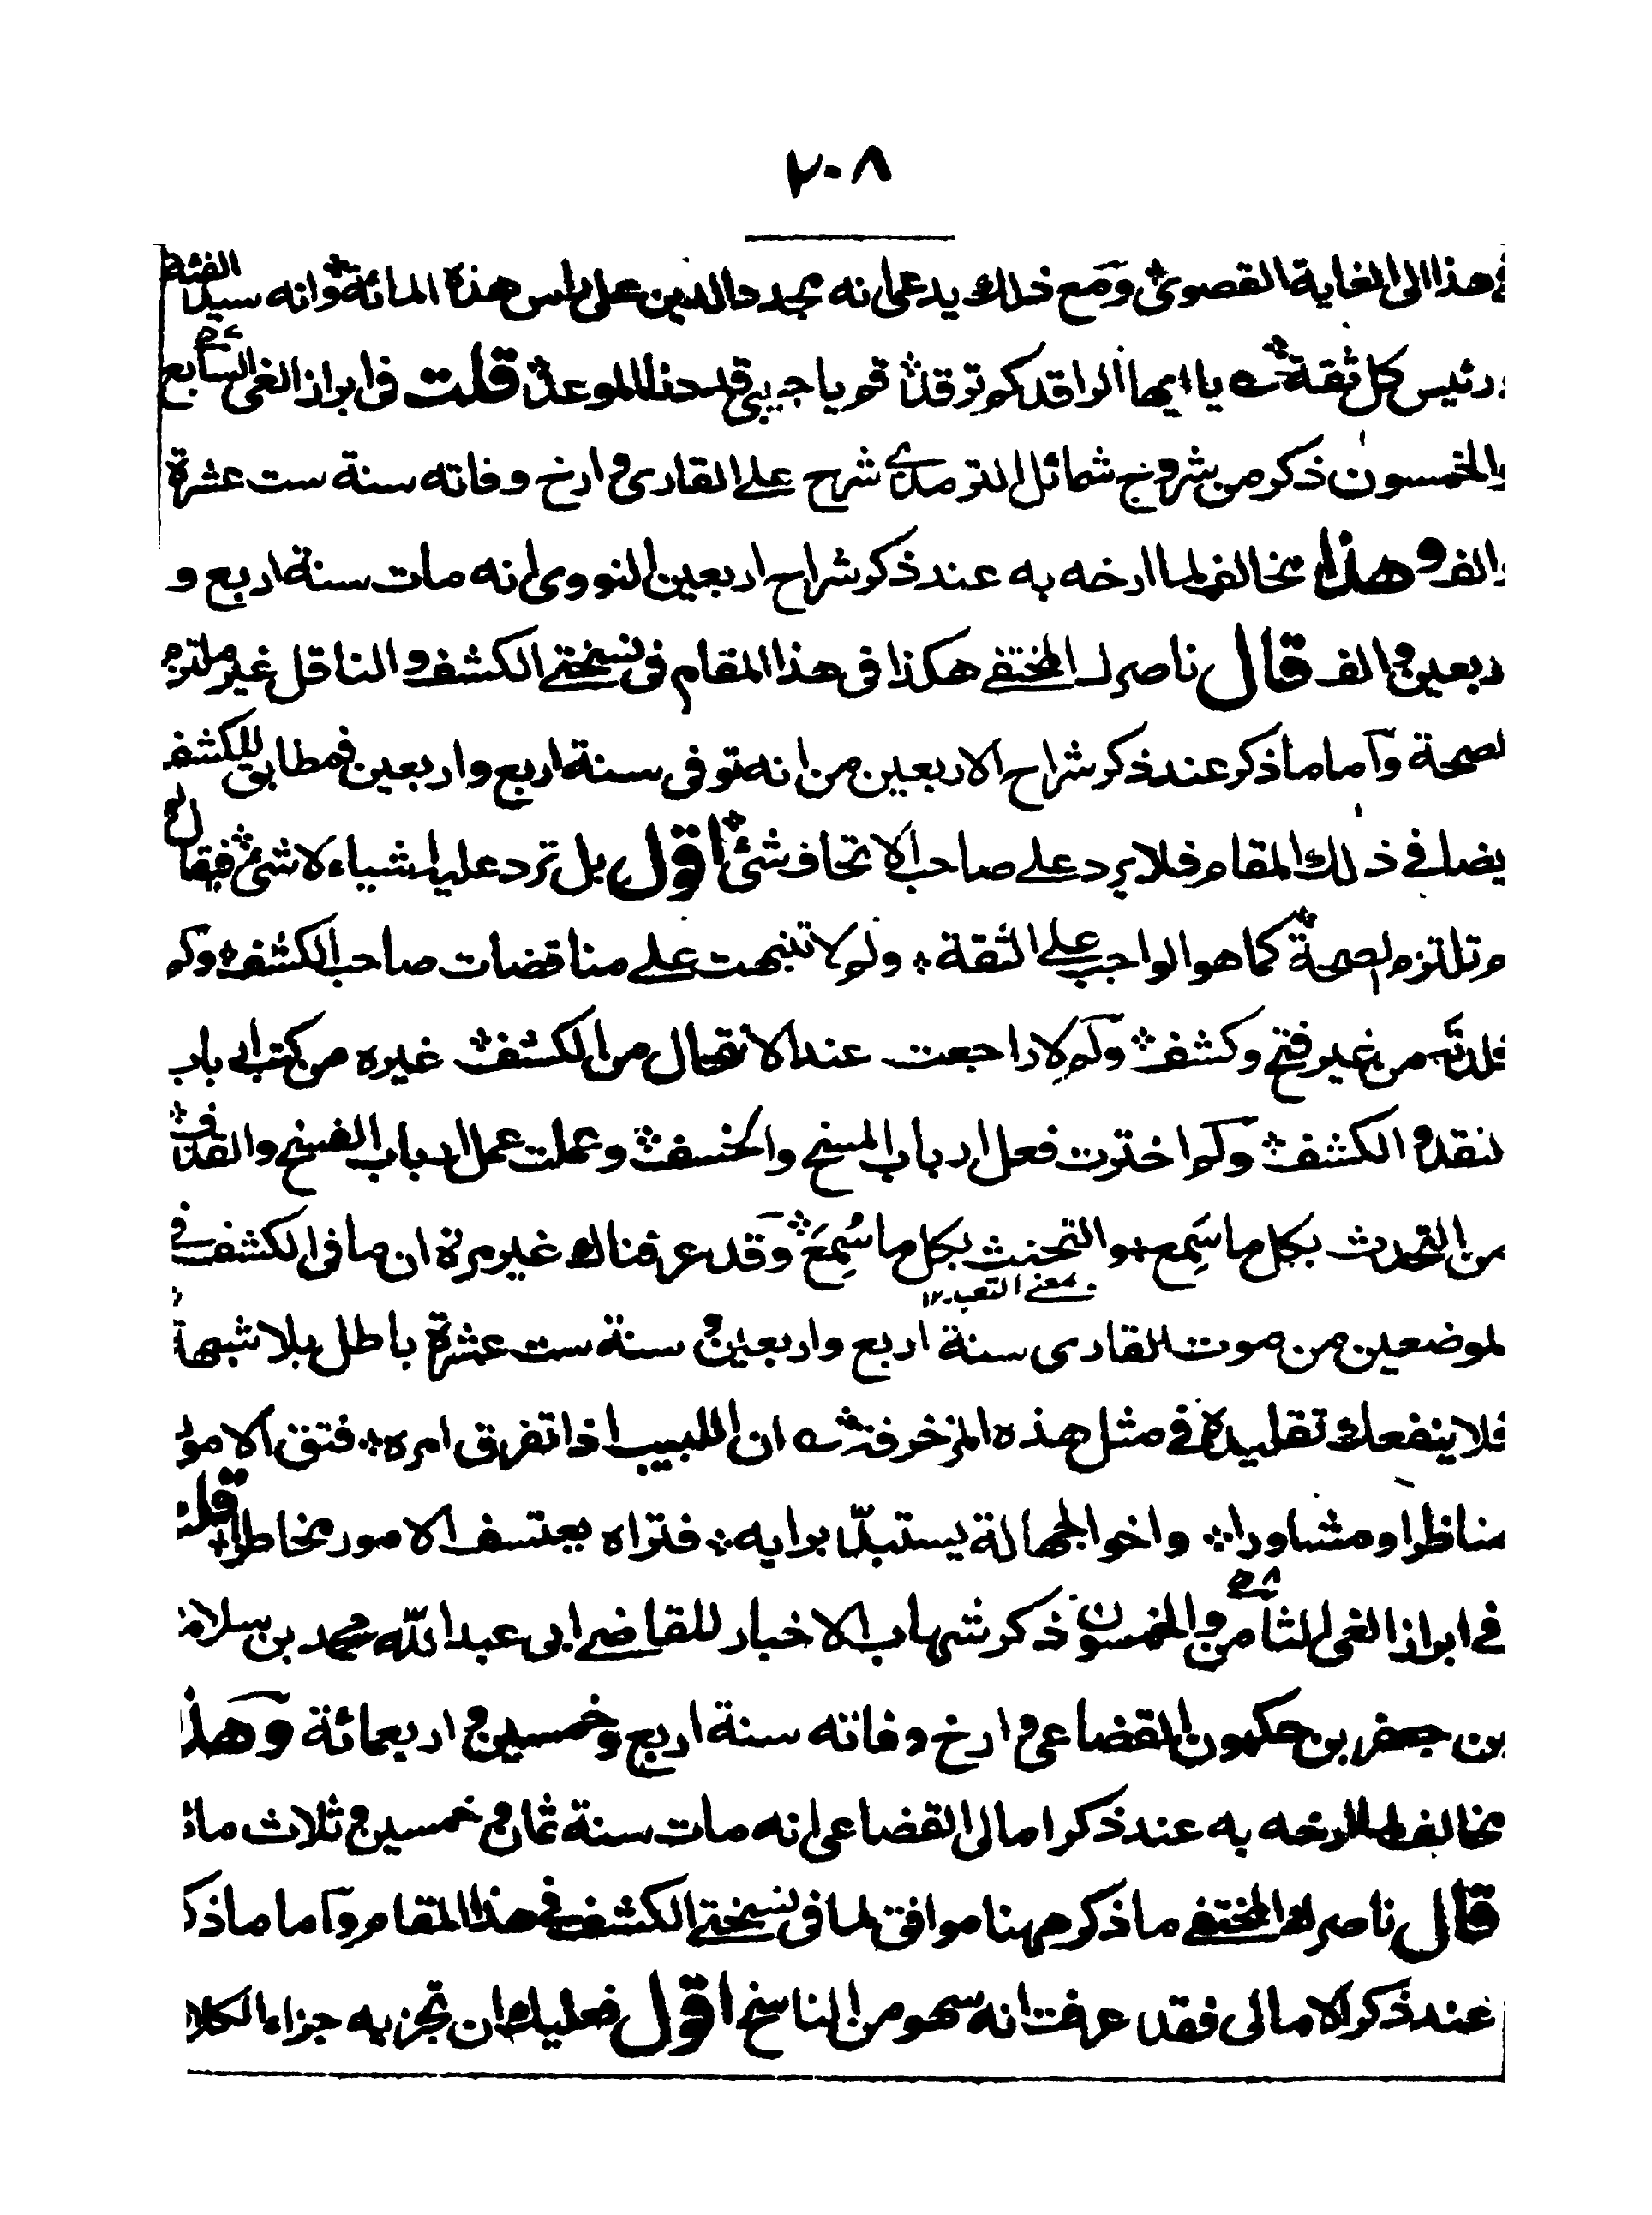 ٢٠٨
في هذا الى الغاية القصوى ومع ذلك يدعى انه مجدد الدين على راس هذه المائة وانه سيد الفئة
ورئيس كل ثقة يا ايها الراقد كم ترقد قم يا حبيبي قد دنا الموعد قلت في ابراز الغي السابع
والخمسون ذكر من شروح شمائل الترمذي شرح علي القاري وارخ وفاته سنة ست عشرة
والف وهذا مخالف لما ارخه به عند ذكر شراح اربعين النووي انه مات سنة اربع و
اربعين والف قال ناصرك المختفي هكذا في هذا المقام في نسختي الكشف والناقل غير ملتزم
لصحة واما ما ذكر عند ذكر شراح الاربعين من انه توفي سنة اربع واربعين فمطابق للكشف
يضا في ذلك المقام فلا يرد على صاحب الاتحاف شئ اقول بل ترد عليه اشياء لا شئ فيقال لم
م تلتزم الصحة كما هو الواجب على الثقة ولم لا تنبهت على مناقضات صاحب الكشف ولم
قلدته من غير فتح وكشف ولم لا راجعت عند الانتحال من الكشف غيره من كتب ارباب
لنقد والكشف ولم اخترت فعل ارباب المسخ والخسف وعملت عمل ارباب الفسخ والقذف
من التحدث بكل ما سَمِع والتحنث بكل ما سُمِعَ وقد عرفناك غير مرة ان ما في الكشف في
بمعنى التعبد ١٢
لموضعين من موت القاري سنة اربع واربعين وسنة ست عشرة باطل بلا شبهة
فلا ينفعك تقليده في مثل هذه المزخرفة ان اللبيب اذا تفرق امره فتق الامور
مناظرا ومشاورا واخو الجهالة يستبد برايه فتراه يعتسف الامور مخاطرا قلت
في ابراز الغي الثامن والخمسون ذكر شهاب الاخبار للقاضي ابي عبد الله محمد بن سلامة
بن جعفر بن حكمون القضاعي وارخ وفاته سنة اربع وخمسين واربعمائة وهذا
مخالف لما ارخه به عند ذكر امالي القضاعي انه مات سنة ثمان وخمسين وثلاث مائة
قال ناصرك المختفي ما ذكر ههنا موافق لما في نسختي الكشف في هذا المقام واما ما ذكر
عند ذكر الامالي فقد عرفت انه سهو من الناسخ اقول فعليك ان تجزيه جزاء الكلا